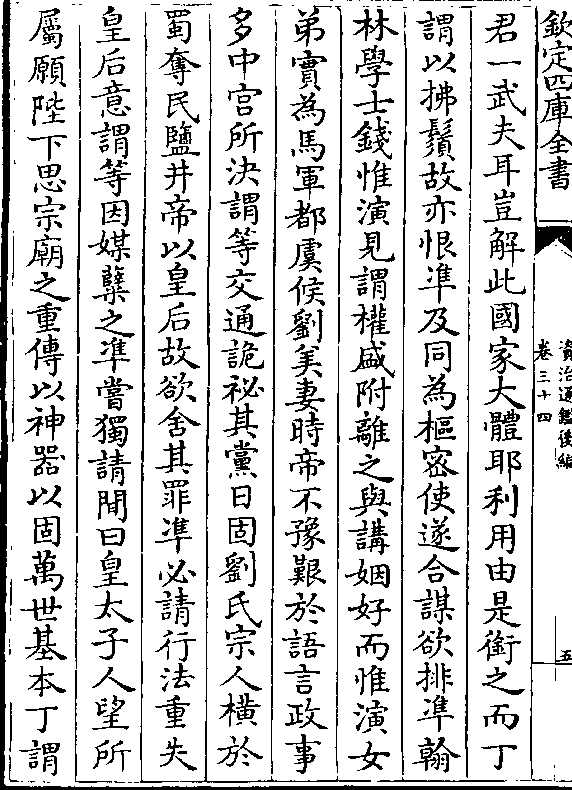 欽定四庫全書
資治通鑑後編
卷三十四
五
君一武夫耳豈解此國家大體耶利用由是銜之而丁
謂以拂鬚故亦恨準及同為樞密使遂合謀欲排準翰
林學士錢惟演見謂權盛附離之與講姻好而惟演女
弟實為馬軍都虞候劉美妻時帝不豫艱於語言政事
多中宫所決謂等交通詭祕其黨日固劉氏宗人橫於
蜀奪民鹽井帝以皇后故欲舍其罪準必請行法重失
皇后意謂等因媒糵之準嘗獨請間曰皇太子人望所
屬願陛下思宗廟之重傳以神器以固萬世基本丁謂